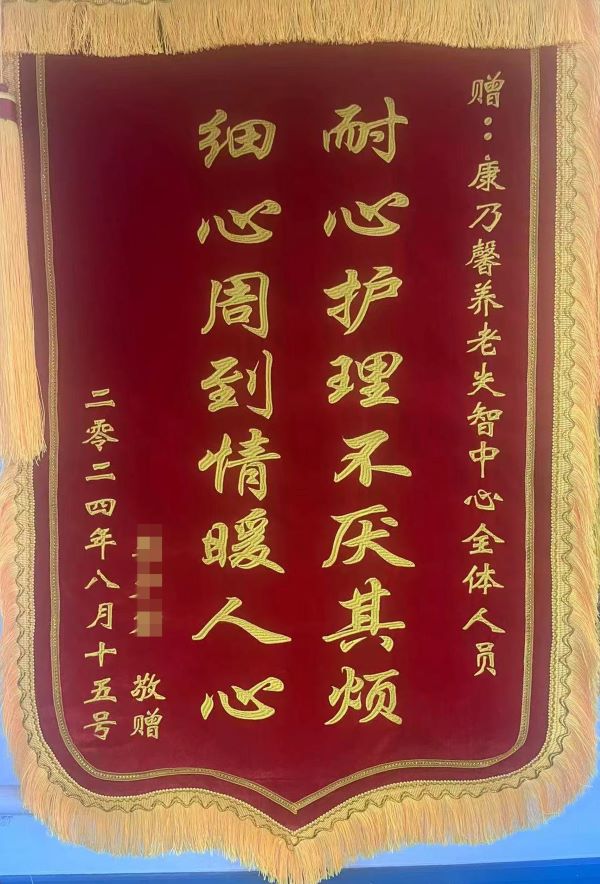 赠：康乃馨养老失智中心全体人员
耐心护理不厌其烦
细心周到情暖人心
敬赠
二零二四年八月十五号